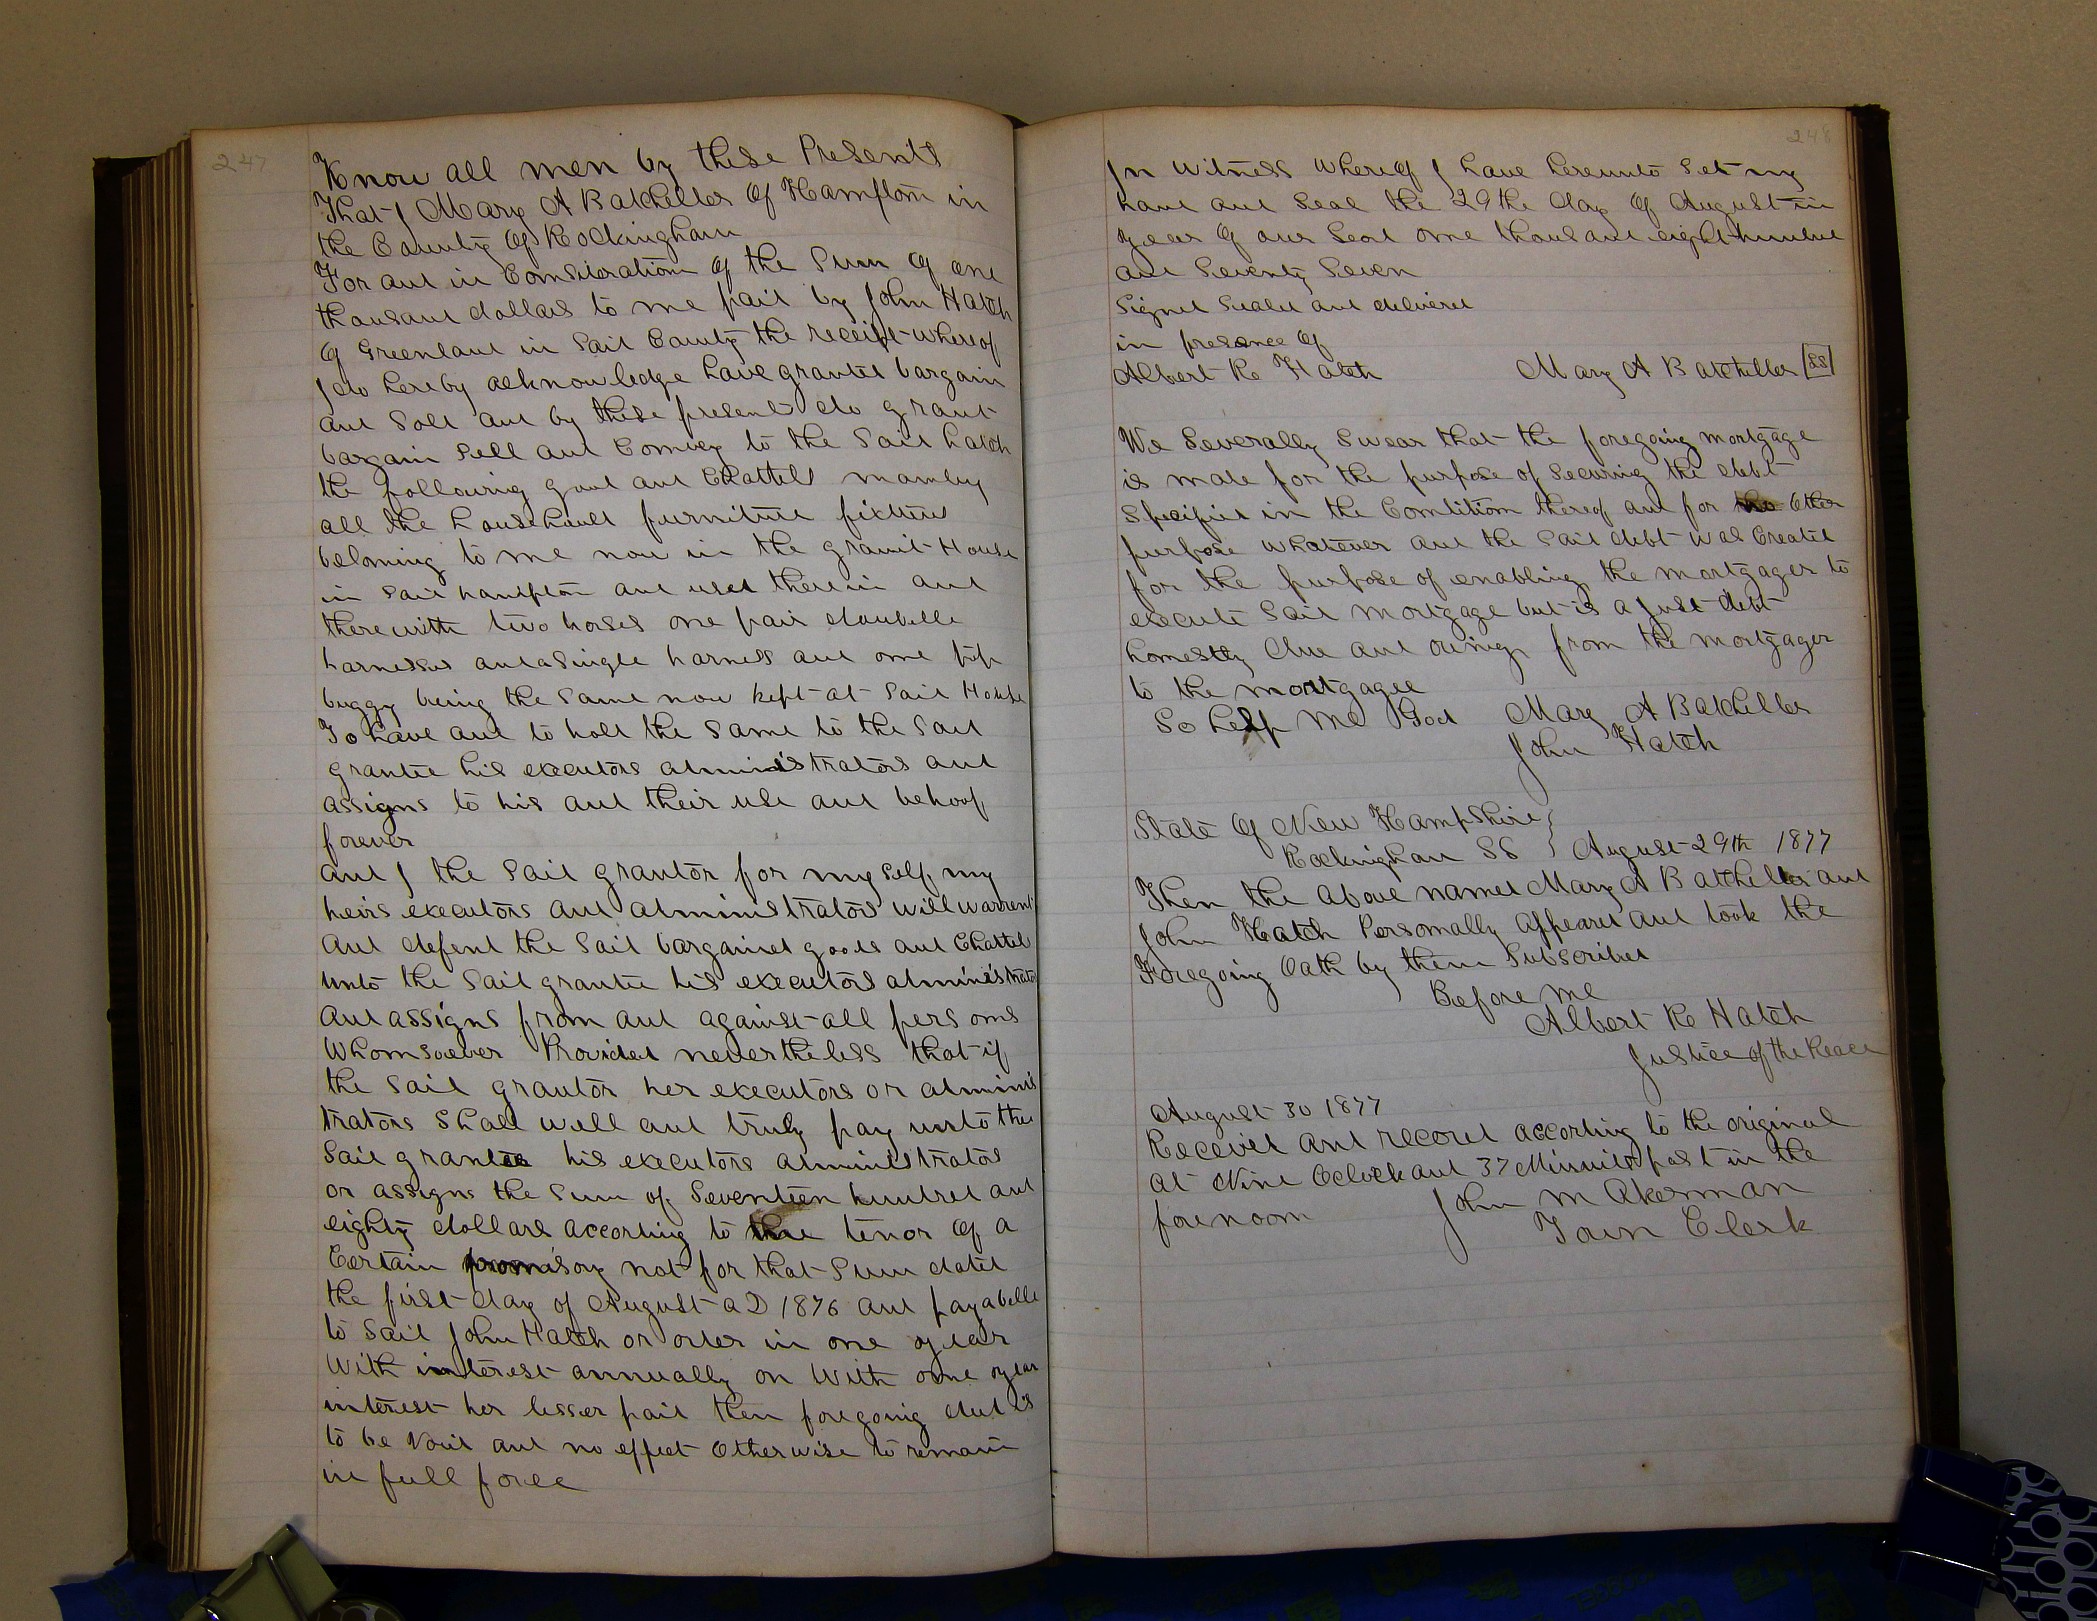 247
Know all men by these Presents
That I Mary A Batcheller Of Hampton in
the County Of Rockingham
For and in Consideration Of the Sum Of one
thousand dollars to me paid by John Hatch
Of Greenland in Said County the receipt whereof
I do hereby acknowledge have granted bargain
and Sold and by these present do grant
bargain Sell and Convey to the Said hatch
the following good and Chattels namley
all the househould furniture fixtures
beloning to me now in the granit House
in Said hampton and used therein and
therewith two horses one pair doubelle
harnesses and a Single harness and one top
buggy being the Same now kept at Said House
To have and to hold the Same to the Said
grantee his executors administrators and
assigns to his and their use and behoof
forever
and I the Said grantor for my Self, my
heirs executors and administrators will warrent
And defend the Said bargained goods and Chattel
unto the Said grantee his executors administrators
And assigns from and against all persons
Whomsoever Provided nevertheless that if
the Said grantor her executors or adminis
trators Shall well and truly pay unto the
Said grantee his executors administrators
or assigns the Sum of Seventeen hundred and
eighty dollars according to the tenor Of a
Certain promisory not for that Sum dated
the first day of August a D 1876 and payabelle
to Said John Hatch or order in one year
With interest annually on With one year
interest her lesser paid then foregoing deed is
to be Void and no effect Otherwise to remain
in full force
248
In Witness Whereof I have hereunto Set my
hand and Seal the 29the day Of August in
year Of our Lord one thousand eight hundred
and Seventy Seven
Signed Sealed and delivered
in presence Of
Albert R Hatch Mary A Batcheller SS
We Severally Swear that the foregoing mortgage
is made for the purpose of Securing the debt
Specified in the Condition thereof and for no Other
purpose whatever and the Said debt was Created
for the purpose of enabling the mortgager to
execute Said mortgage but is a Just debt
honestly due and owing from the mortgager
to the mortgagee
So help me God Mary A Batcheller
John Hatch
State Of New Hampshire
Rockingham SS August 29th 1877
Then the above named Mary A Batcheller and
John Hatch Personally Appeared and took the
Foregoing Oath by them Subscribed
Before me
Albert R Hatch
Justice of the Peace
August 30 1877
Received and record according to the original
at Nine Oclock and 37 Minuits past in the
forenoon John M Akerman
Town Clerk